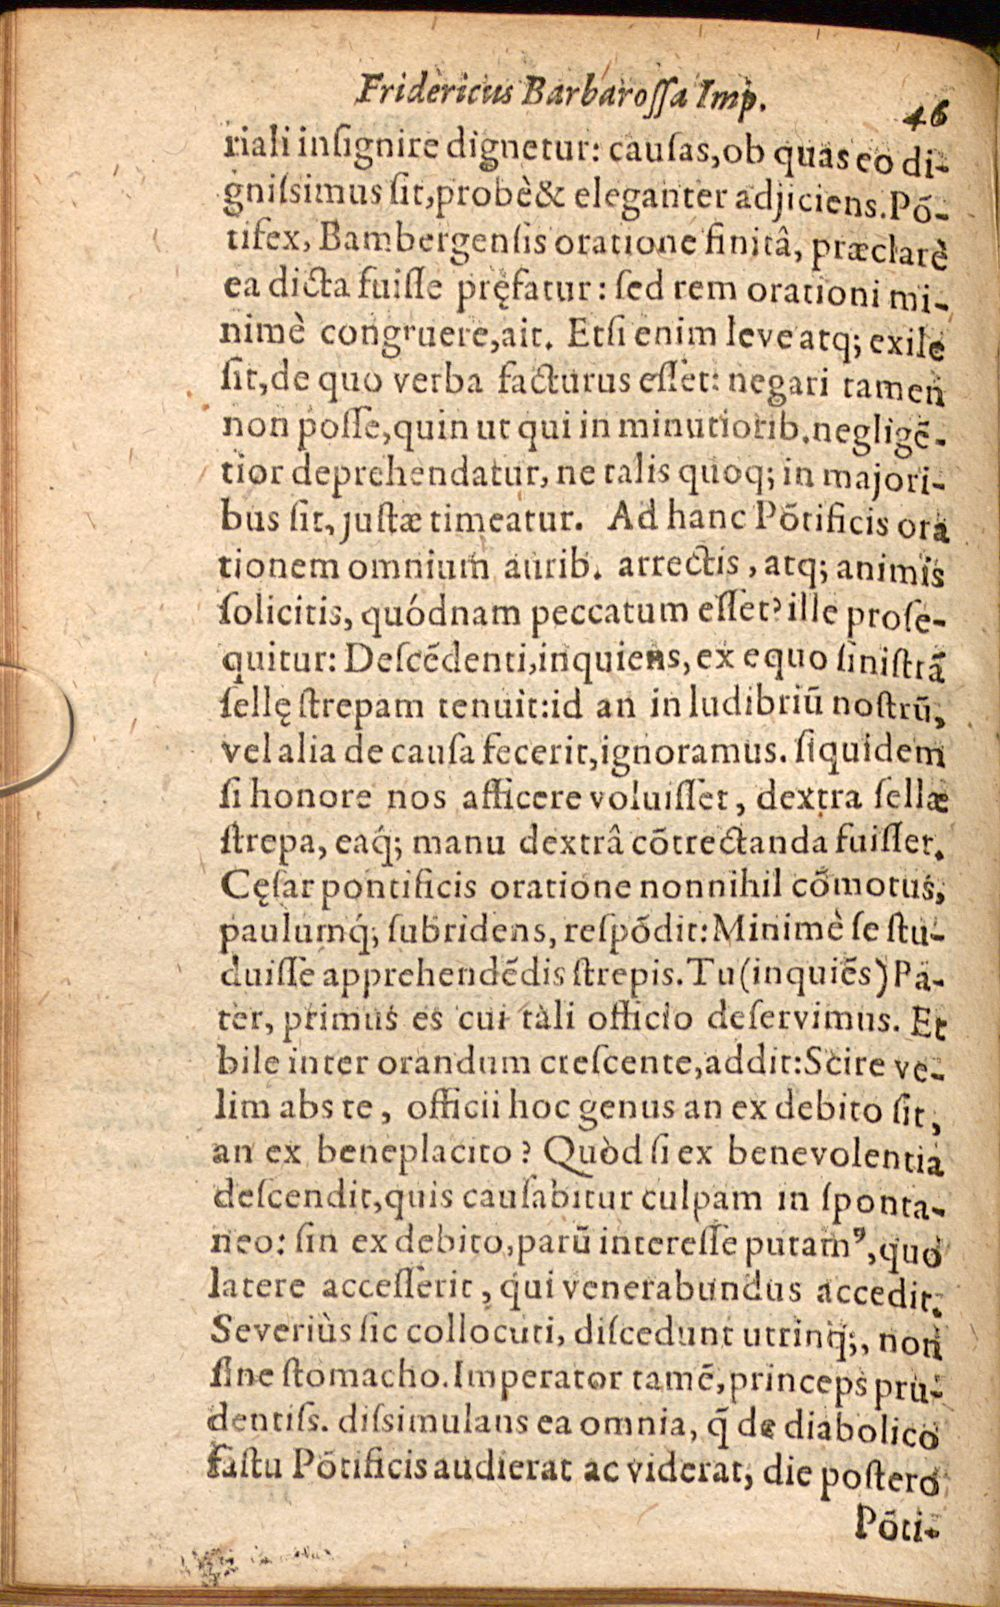 Fridericus Barbarossa Imp.
46
riali insignire dignetur: causas, ob quas eo di-
gnissimus sit, probè & eleganter adjiciens. Põ-
tifex, Bambergensis oratione finitâ, præclarè
ea dicta fuisse pręfatur: sed rem orationi mi-
nimè congruere, ait. Etsi enim leve atq; exile
sit, de quo verba facturus esset: negari tamen
non posse, quin ut qui in minutiorib. negligẽ-
tior deprehendatur, ne talis quoq; in majori-
bus sit, justæ timeatur. Ad hanc Põtificis ora
tionem omnium aurib. arrectis, atq; animis
solicitis, quódnam peccatum esset? ille prose-
quitur: Descẽdenti, inquiens, ex equo sinistrã
sellę strepam tenuit: id an in ludibriũ nostrũ,
vel alia de causa fecerit, ignoramus. siquidem
si honore nos afficere voluisset, dextra sellæ
strepa, eaq́; manu dextrâ cõtrectanda fuisset.
Cęsar pontificis oratione nonnihil cõmotus,
paulumq́; subridens, respõdit: Minimè se stu-
duisse apprehendẽdis strepis. Tu (inquiẽs) Pa-
ter, primus es cui tali officio deservimus. Et
bile inter orandum crescente, addit: Scire ve-
lim abs te, officii hoc genus an ex debito sit,
an ex beneplacito? Quòd si ex benevolentia
descendit, quis causabitur culpam in sponta-
neo: sin ex debito, parũ interesse putamꝰ, quo
latere accesserit, qui venerabundus accedit.
Severiùs sic collocuti, discedunt utrinq́;, non
sine stomacho. Imperator tamẽ, princeps pru-
dentiss. dissimulans ea omnia, q̃ de diabolico
fastu Põtificis audierat ac viderat, die postero
Põti-